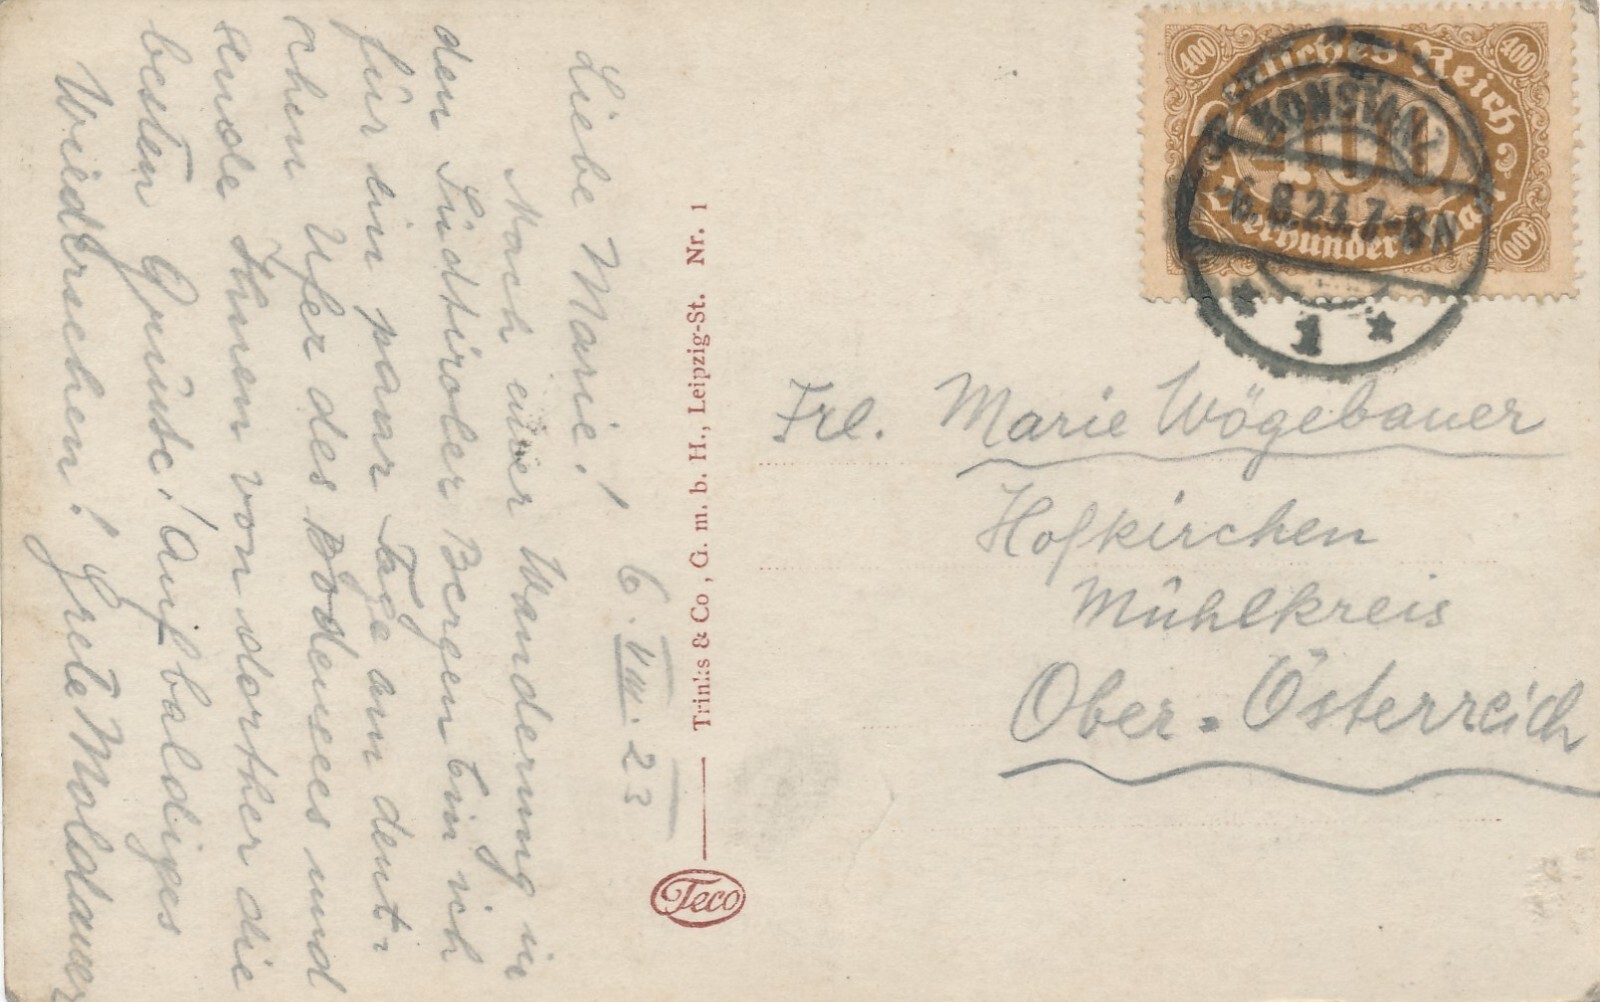 6. VIII. 23
Liebe Marie!
Nach einer Wanderung in
den Südtiroler Bergen bin ich
für ein paar Tage am deut-
schen Ufer des Bodensees und
sende Ihnen von dorther die
besten Grüße! Auf baldiges
Wiedersehen! Grete Moldauer
Trinks & Co., G. m. b. H., Leipzig-St. Nr. 1
Teco
400 400
Deutsches Reich
400
Vierhundert Mark
400
KONSTANZ
-6.8.23.7-8N
* 1 *
Frl. Marie Wögebauer
Hofkirchen
Mühlkreis
Ober-Österreich